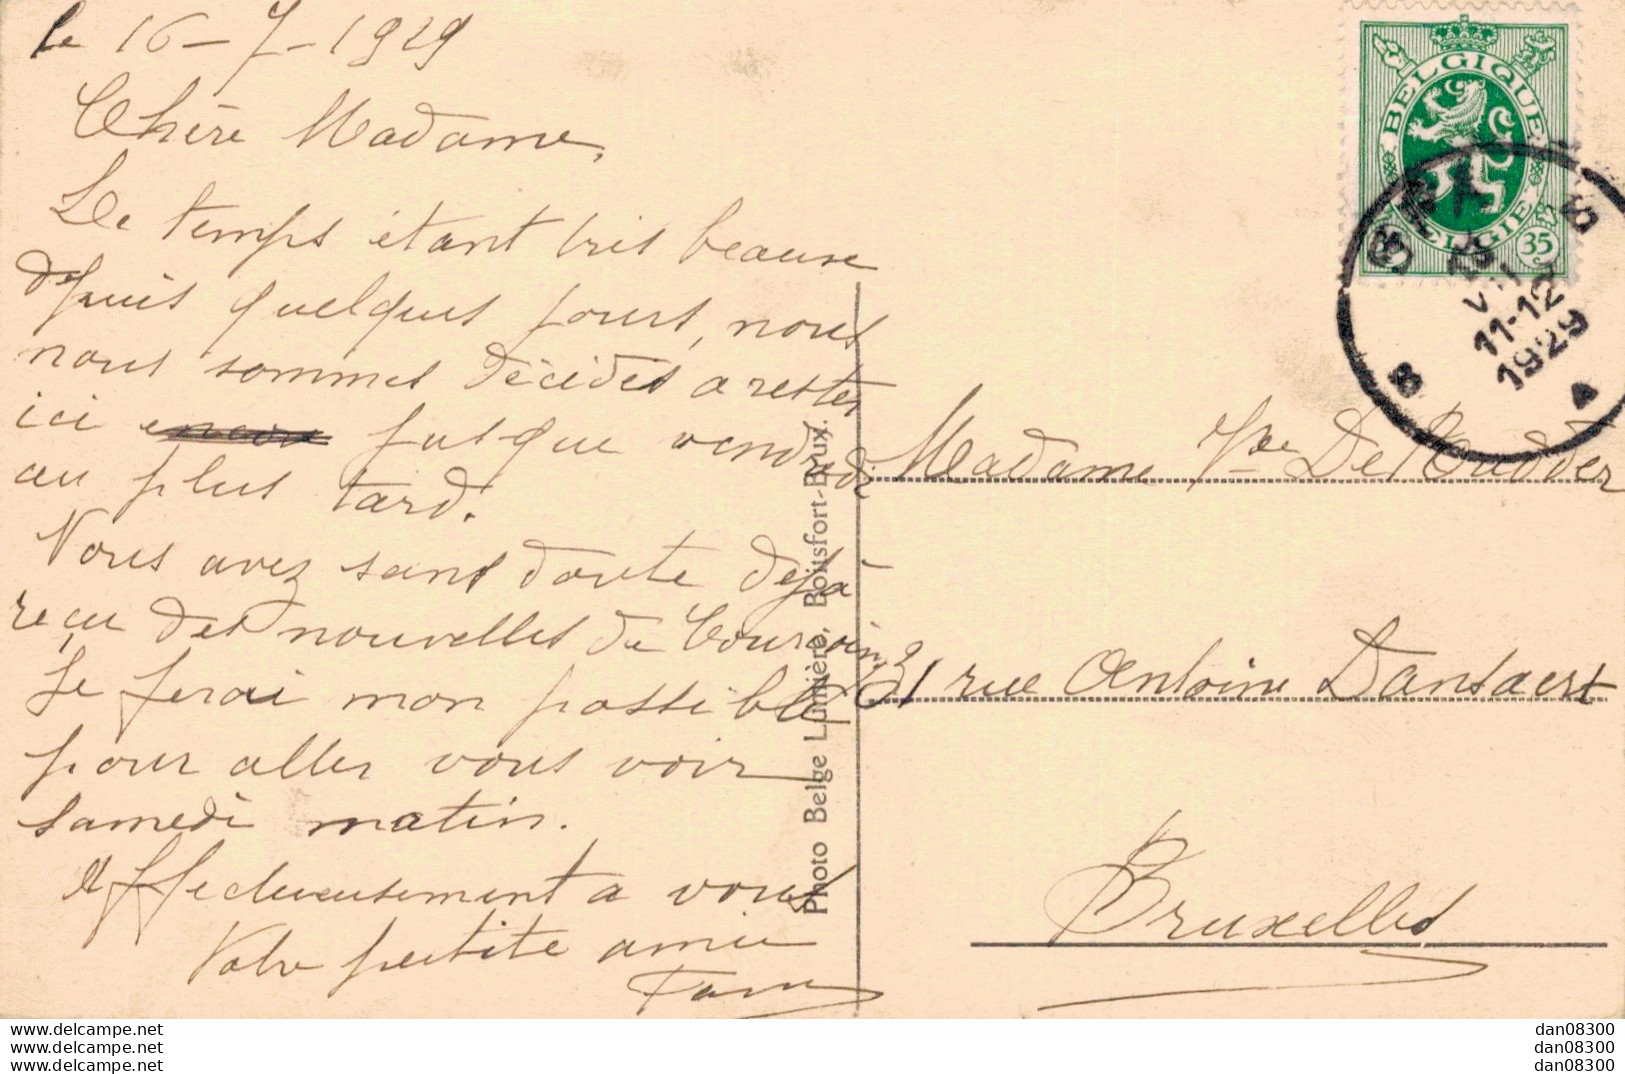 le 16-7-1929
Chère Madame,
Le temps étant très beause
depuis quelques jours, nous
nous sommes décidés a rester
ici encore jusque vendredi
au plus tard.
Vous avez sans doute dejà
reçu des nouvelles de
Je ferai mon possible
pour aller vous voir
samedi matin.
Affectueusement a vous
Votre petite amie
Photo Belge Lumière, Boitsfort-Brux.
BELGIQUE
BELGIE
35
SPA
VII
11-12
1929
Madame Vve De Rudder
31 rue Antoine Dansaert
Bruxelles
www.delcampe.net
www.delcampe.net
www.delcampe.net
dan08300
dan08300
dan08300